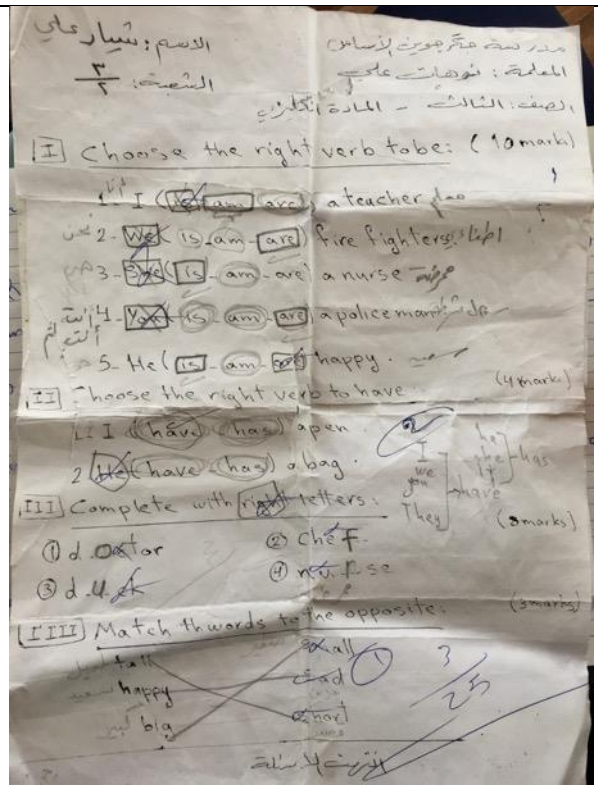 مدرسة جكرجوين الأساس الاسم: شيار علي
المعلمة: نوهات علي الشعبة: ٣/٢
الصف: الثالث - المادة انكليزي
I Choose the right verb to be: (10 mark)
1- I (is am are) a teacher معلم
نحن 2- We (is - am - are) fire fighters اطفاء
3- She (is - am - are) a nurse ممرضة
4- You (is - am - are) a policeman
5- He (is - am - are) happy. سعيد
II Choose the right verb to have (4 mark)
1 I (have has) a pen 2
2 He (have - has) a bag.
I we you They have
he she it has
III Complete with right letters: (8 marks)
① d octor ② chef
③ d u ck ④ nurse
IIII Match thwords to the opposite: (3 marks)
tall small
happy sad 1
big كبير short
3/25
انتهت الأسئلة